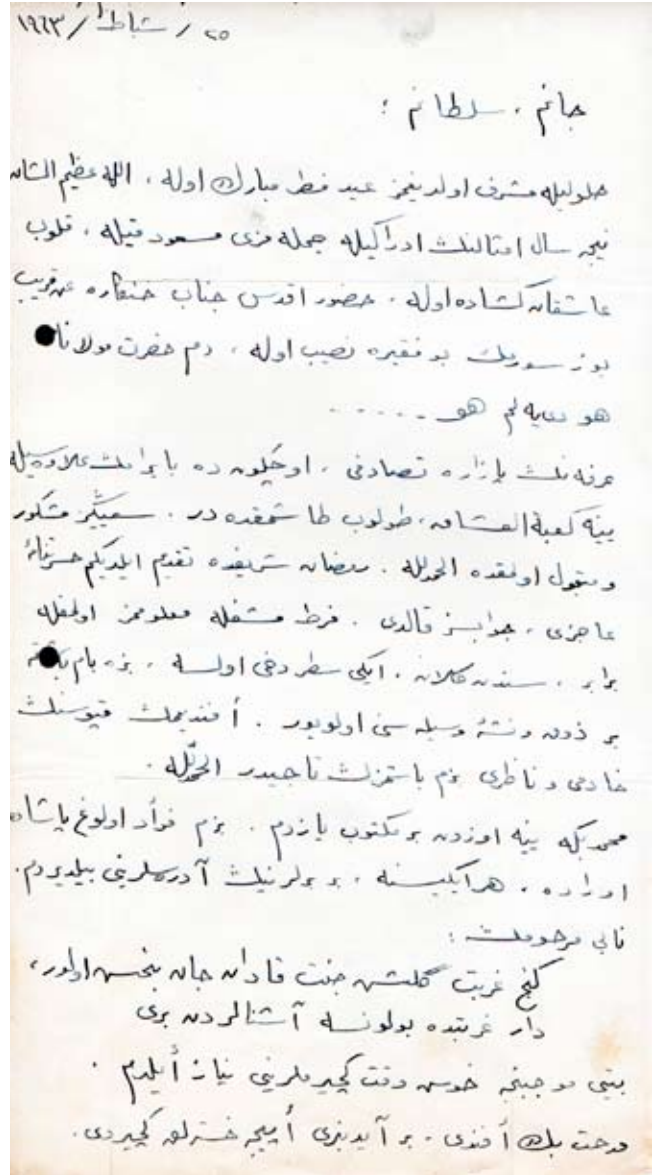 ٢٥ / شباط / ١٩٦٣
جانم ، سلطانم ؛
حلولیله مشرف اولدیغمز عید فطر مبارك اوله ، الله عظیم الشان
نیجه سال امثالنك ادراكیله جمله مزی مسعود قیله ، قلوب
عاشقان كشاده اوله ، حضور اقدس جناب خنكاره عن قریب
یوز سورمك بو فقیره نصیب اوله ، دم حضرت مولانا
هو دییه لم هو . . . . . .
عرفه نك بازاره تصادفی ، اوچ كون ده بایرامك علاوه سیله
ینه كعبة العشاق ، طولوب طاشمقده در . سعیكز مشكور
و مقبول اولمقده الحمدلله . رمضان شریفده تقدیم ایلدیكم
عاجزی ، جوابسز قالدی . فرط مشغله معلوممز اولمغله
برابر ، سندن كلان ، ایكی سطر دخی اولسه ، بزه
بر ذوق و نشئه وسیله سی اولویور . أفندیمك قپوسنك
خادمی و ناظری بزم باشمزك تاجیدر الحمدلله .
محمد بكه ینه اوزون بر مكتوب یازدم . بزم فؤاد اولوغ پاشاده
اوراده ، هر ایكیسنه ، بر برلرینك آدرسلرینی بیلدیردم .
نابی مرحومك :
كنج غربت كلشن جنت قادان جان بخش اولور ،
دار غربتده بولونسه آشنالردن بری
بیتی موجبنجه خوش وقت كچیرملرینی نیاز أیلدم .
مدحت بك أفندی ، بر آیدنبری أپیجه خسته لق كچیردی .